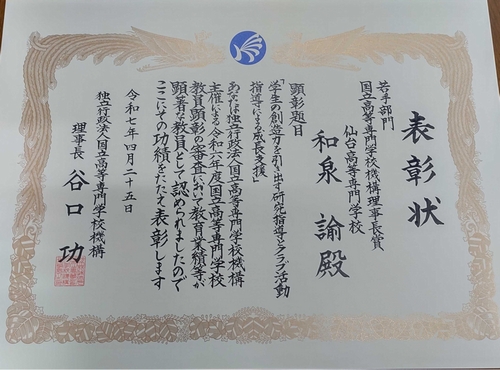 表彰状
若手部門
国立高等専門学校機構理事長賞
仙台高等専門学校
和泉諭殿
顕彰題目
「学生の創造力を引き出す研究指導とクラブ活動
指導による成長支援」
あなたは独立行政法人国立高等専門学校機構
主催による令和六年度国立高等専門学校
教員顕彰の審査において教育業績等が
顕著な教員として認められましたので
ここにその功績をたたえ表彰します
令和七年四月二十五日
独立行政法人国立高等専門学校機構
理事長 谷口功